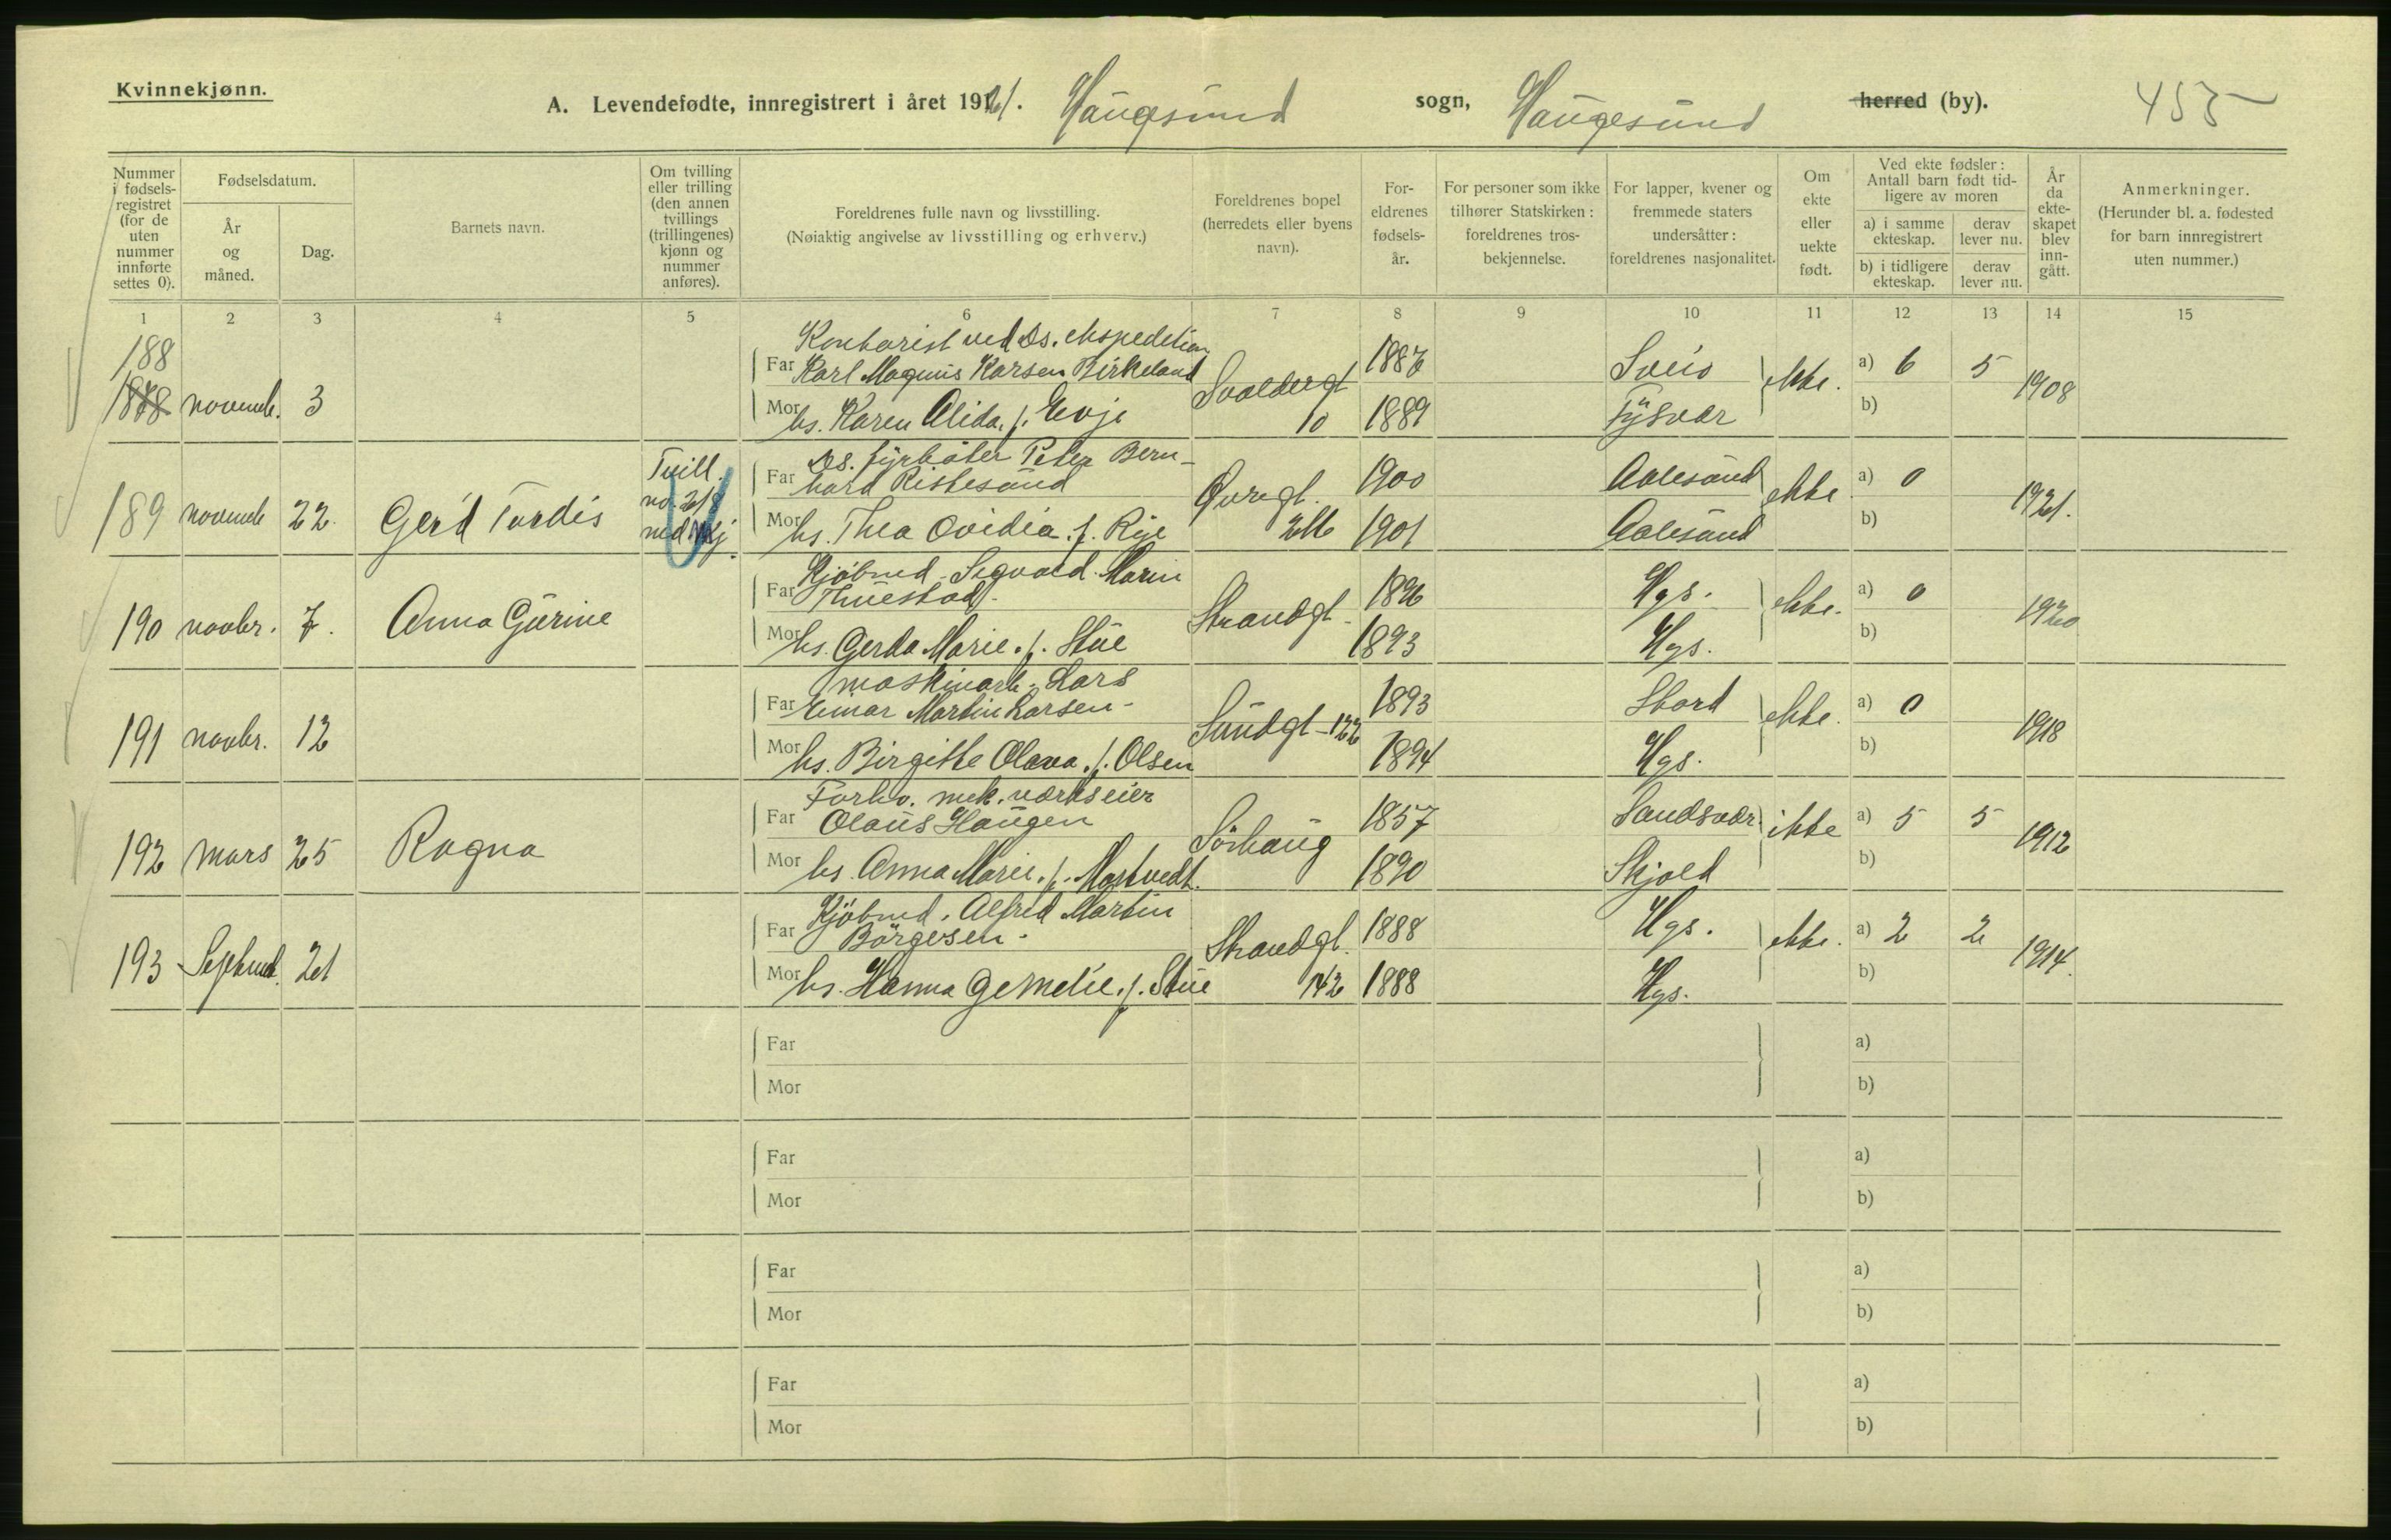 Kvinnekjønn.
A. Levendefødte, innregistrert i året 1921. Haugesund sogn, Haugesund herred (by). 455
Nummer i fødsels-registret (for de uten nummer innførte settes 0).
Fødselsdatum.
År og måned.
Dag.
Barnets navn.
Om tvilling eller trilling (den annen tvillings (trillingenes) kjønn og nummer anføres).
Foreldrenes fulle navn og livsstilling.
(Nøiaktig angivelse av livsstilling og erhverv.)
Foreldrenes bopel (herredets eller byens navn).
For-eldrenes fødsels-år.
For personer som ikke tilhører Statskirken: foreldrenes tros-bekjennelse.
For lapper, kvener og fremmede staters undersåtter: foreldrenes nasjonalitet.
Om ekte eller uekte født.
Ved ekte fødsler: Antall barn født tid-ligere av moren
a) i samme ekteskap.
derav lever nu.
b) i tidligere ekteskap.
derav lever nu.
År da ekte-skapet blev inn-gått.
Anmerkninger.
(Herunder bl. a. fødested for barn innregistrert uten nummer.)
1 2 3 4 5 6 7 8 9 10 11 12 13 14 15
188
Kontorist ved Ds. ekspedition
Far Karl Magnus Karsen Birkeland 1887 Sveio a) 6 5
novemb. 3 Svoldergt ekte. 1908
Mor hs. Karen Alida, f. Evje 10 1889 Tysvær b)
Tvill. Ds. fyrbøter Peter Bern-
Far hard Ristesund 1900 Aalesund a) 0
189 novemb 22. Gerd Tordis Øvregt. ekte 1921.
Mor hs. Thea Ovidia. f. Rye 1901 Aalesund b)
Kjøbmd. Sigvald Marin
Far Thuestad. 1896 Hgs. a) 0
190 novbr. 7. Anna Gurine Strandgt. ekte. 1920
Mor hs. Gerda Marie. f. Stue 1893 Hgs. b)
maskinarb. Lars
Far Einar Martin Larsen - 1893 Stord a) 0
191 novbr. 12 Sundgt - 122 ekte. 1918
Mor hs. Birgitte Olava. f. Olsen 1894 Hgs. b)
Forhv. mek. værkseier
Far Olaus Haugen 1857 Sandsvær a) 5 5
192 mars 25 Ragna Sørhaug ekte 1912
Mor hs. Anna Marie. f. 1890 Skjold b)
Kjøbmd. Alfred Martin
Far Børgesen - 1888 Hgs. a) 2 2
193 Septemb. 21 Strandgt. ekte. 1914.
Mor hs. Hanna f. Stue 142 1888 Hgs. b)
Far a)
Mor b)
Far a)
Mor b)
Far a)
Mor b)
Far a)
Mor b)